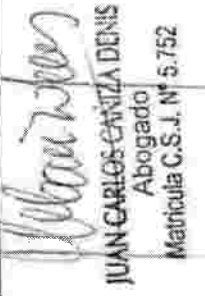 JUAN CARLOS CANIZA DENIS
Abogado
Matricula C.S.J. N° 5.752